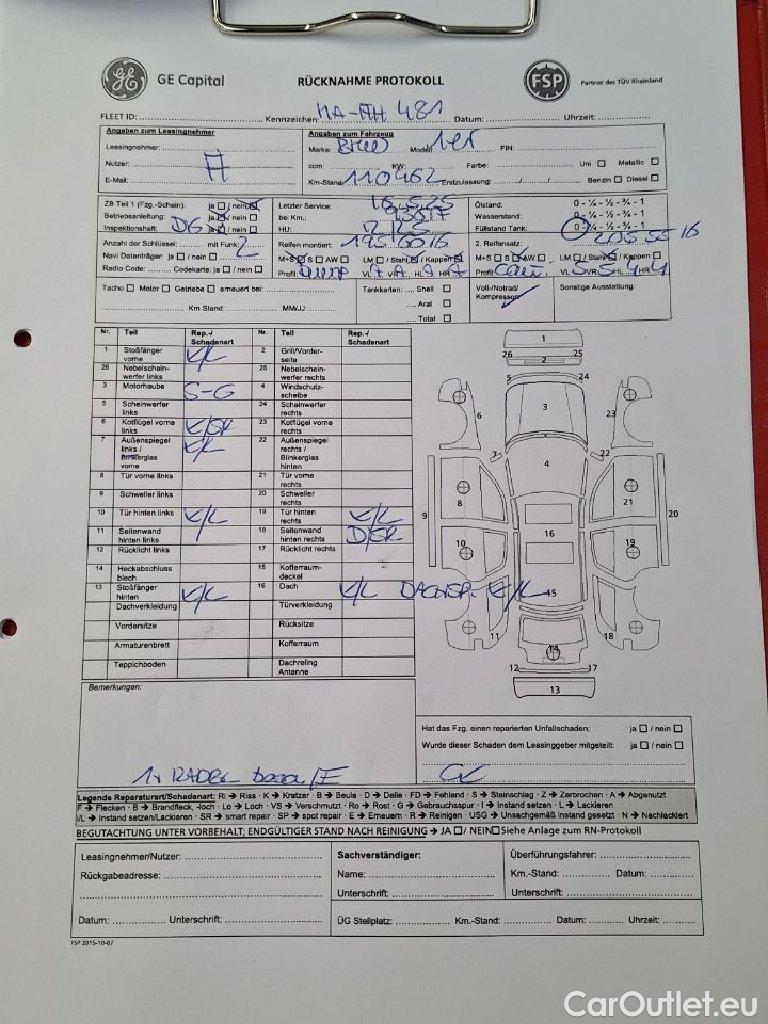 GE Capital RÜCKNAHME PROTOKOLL FSP Partner des TÜV Rheinland
FLEET ID: Kennzeichen: MA-MH 481 Datum: Uhrzeit:
Angaben zum Leasingnehmer Angaben zum Fahrzeug
Leasingnehmer: Marke: BMW Modell: 1er FIN:
Nutzer: ccm: KW: Farbe: Uni ☐ Metallic ☐
E-Mail: Km-Stand: 110462 Erstzulassung: Benzin ☐ Diesel ☐
ZB Teil 1 (Fzg.-Schein): ja ☐ / nein ☐ Letzter Service: Ölstand: 0 - ¼ - ½ - ¾ - 1
Betriebsanleitung: ja ☐ / nein ☐ bei Km.: Wasserstand: 0 - ¼ - ½ - ¾ - 1
Inspektionsheft: ja ☐ / nein ☐ HU: Füllstand Tank: 0 - ¼ - ½ - ¾ - 1
Anzahl der Schlüssel: mit Funk: 2 Reifen montiert: 195 60 16 2. Reifensatz: 205 55 16
Navi Datenträger: ja ☐ / nein ☐ M+S ☐ S ☐ AW ☐ LM ☐ / Stahl ☐ / Kappen ☐ M+S ☐ S ☐ AW ☐ LM ☐ / Stahl ☐ / Kappen ☐
Radio Code: Codekarte: ja ☐ / nein ☐ Profil: Dunlop VL 7 VR 7 HL 7 HR 7 Profil: VL 5 VR 5 HL HR
Tacho ☐ Motor ☐ Getriebe ☐ erneuert bei: Tankkarten: Shell ☐ Voll-/Notrad/ Sonstige Ausstattung:
Aral ☐ Kompressor
Km Stand: MM/JJ: Total ☐
Nr. Teil Rep.-/ Schadenart Nr. Teil Rep.-/ Schadenart
1 Stoßfänger vorne I/L 2 Grill/Vorderseite
26 Nebelscheinwerfer links 25 Nebelscheinwerfer rechts
3 Motorhaube S-G 4 Windschutzscheibe
5 Scheinwerfer links 24 Scheinwerfer rechts
6 Kotflügel vorne links I/SR 23 Kotflügel vorne rechts
7 Außenspiegel links / Blinkerglas vorne I/L 22 Außenspiegel rechts / Blinkerglas hinten
8 Tür vorne links 21 Tür vorne rechts
9 Schweller links 20 Schweller rechts
10 Tür hinten links I/L 19 Tür hinten rechts I/L
11 Seitenwand hinten links 18 Seitenwand hinten rechts D/SR
12 Rücklicht links 17 Rücklicht rechts
14 Heckabschlussblech 15 Kofferraumdeckel
13 Stoßfänger hinten I/L 16 Dach I/L DACHSP. I/L
Dachverkleidung Türverkleidung
Vordersitze Rücksitze
Armaturenbrett Kofferraum
Teppichboden Dachreling Antenne
Bemerkungen:
1x RADBL
Hat das Fzg. einen reparierten Unfallschaden: ja ☐ / nein ☐
Wurde dieser Schaden dem Leasinggeber mitgeteilt: ja ☐ / nein ☐
Legende Reparaturart/Schadenart: Ri → Riss · K → Kratzer · B → Beule · D → Delle · FD → Fehlend · S → Steinschlag · Z → Zerbrochen · A → Abgenutzt
F → Flecken · B → Brandfleck, -loch · Lo → Loch · VS → Verschmutzt · Ro → Rost · G → Gebrauchsspur · I → Instand setzen · L → Lackieren
I/L → Instand setzen/Lackieren · SR → smart repair · SP → spot repair · E → Erneuern · R → Reinigen · USG → Unsachgemäß instand gesetzt · N → Nachlackiert
BEGUTACHTUNG UNTER VORBEHALT; ENDGÜLTIGER STAND NACH REINIGUNG → JA ☐ / NEIN ☐ Siehe Anlage zum RN-Protokoll
Leasingnehmer/Nutzer: Sachverständiger: Überführungsfahrer:
Rückgabeadresse: Name: Km.-Stand: Datum:
Unterschrift: Unterschrift:
Datum: Unterschrift: ÜG Stellplatz: Km.-Stand: Datum: Uhrzeit:
FSP 2015-10-07
CarOutlet.eu